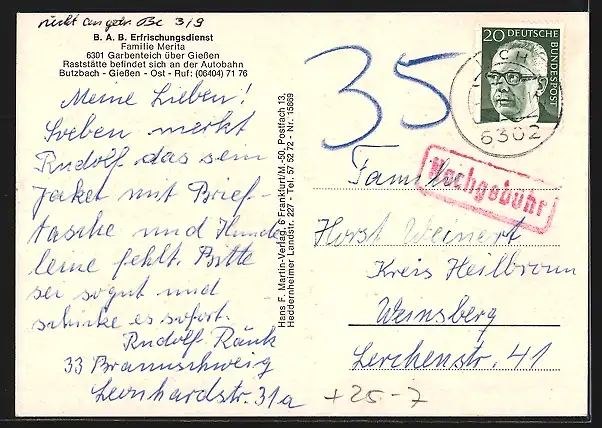 nicht angetr. Bc 3/9
B. A. B. Erfrischungsdienst
Familie Merita
6301 Garbenteich über Gießen
Raststätte befindet sich an der Autobahn
Butzbach - Gießen - Ost - Ruf: (06404) 71 76
Meine Lieben!
Soeben merkt
Rudolf das sein
Jaket mit Brief-
tasche und Hunde
leine fehlt. Bitte
sei so gut und
schicke es sofort.
Rudolf Ränk
33 Braunschweig
Leonhardstr. 31a
Hans F. Martin-Verlag, 6 Frankfurt/M.-50, Postfach 13,
Heddernheimer Landstr. 227 - Tel. 57 52 72 - Nr. 15869
35
20 DEUTSCHE
BUNDESPOST
6302
Nachgebühr
Familie
Horst Weinert
Kreis Heilbronn
Weinsberg
Lerchenstr. 41
+25-7